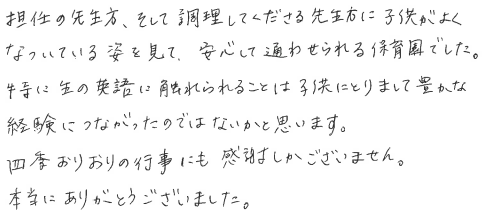 担任の先生方、そして調理してくださる先生方に子供がよく
なついている姿を見て、安心して通わせられる保育園でした。
特に生の英語に触れられることは子供にとりまして豊かな
経験につながったのではないかと思います。
四季おりおりの行事にも感謝しかございません。
本当にありがとうございました。